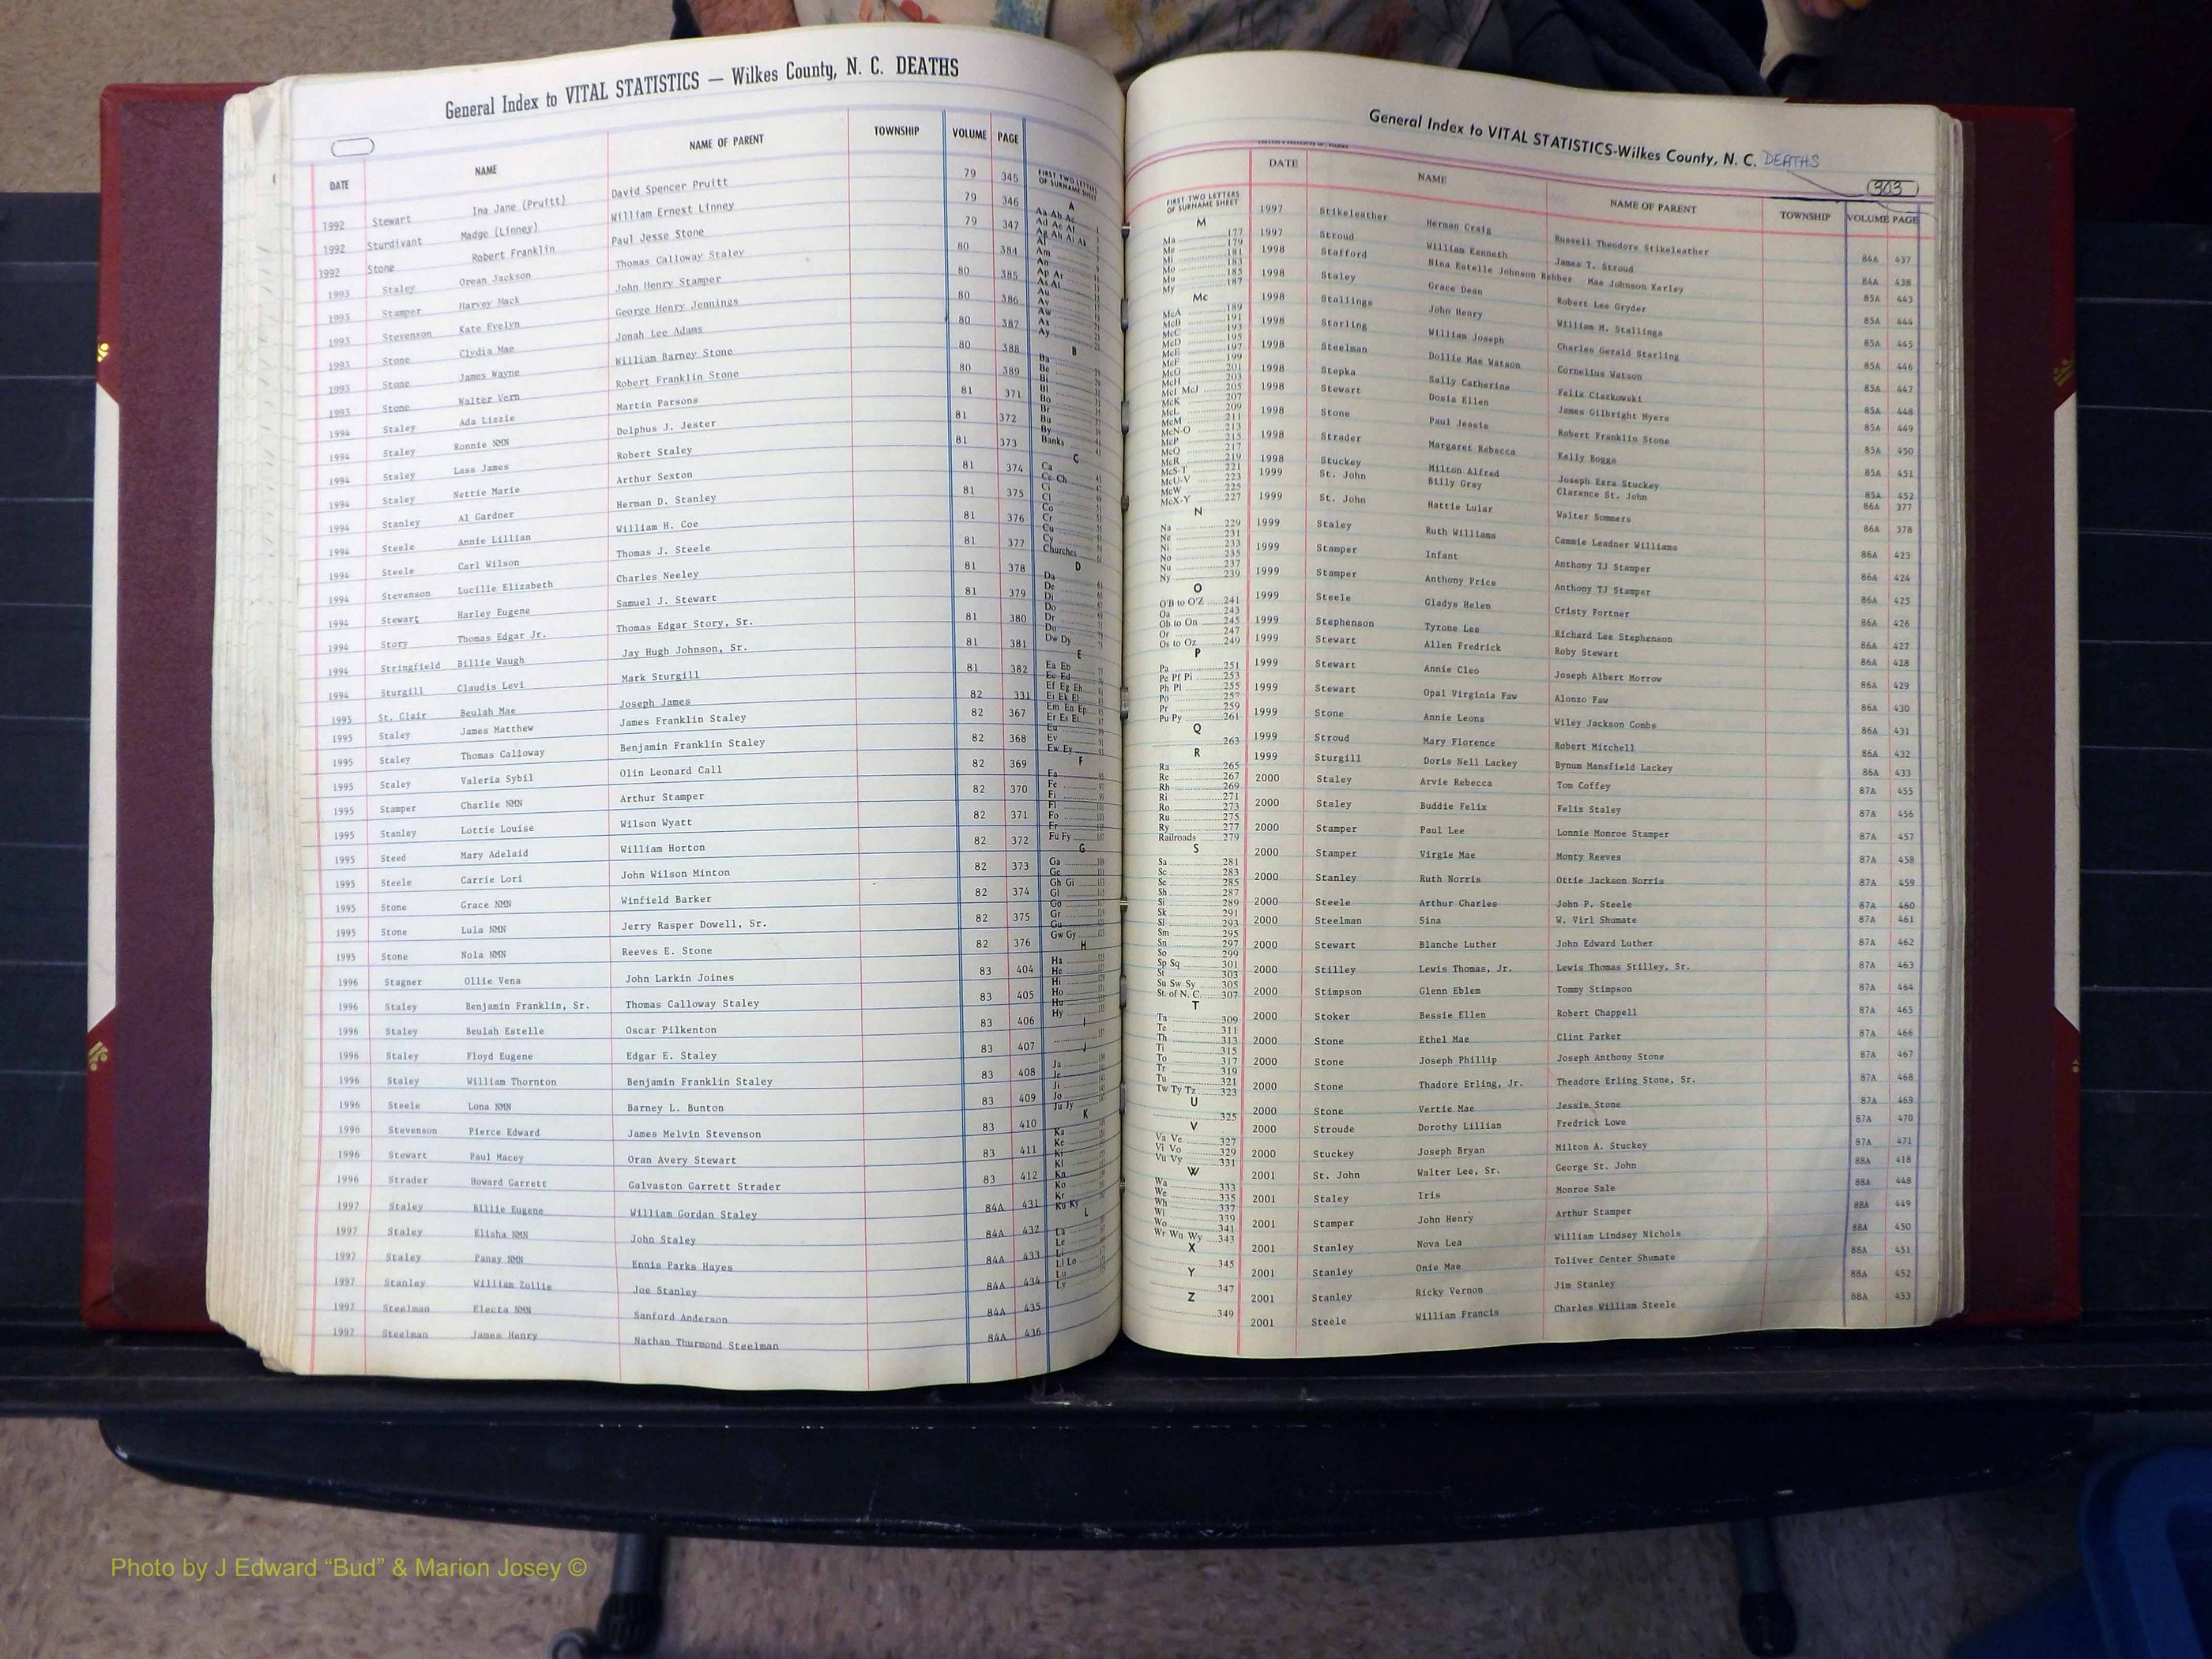 General Index to VITAL STATISTICS — Wilkes County, N. C. DEATHS
DATE NAME NAME OF PARENT TOWNSHIP VOLUME PAGE
1992 Stewart Ina Jane (Pruitt) David Spencer Pruitt 79 345
1992 Sturdivant Madge (Linney) William Ernest Linney 79 346
1992 Stone Robert Franklin Paul Jesse Stone 79 347
1993 Staley Orean Jackson Thomas Calloway Staley 80 384
1993 Stamper Harvey Mack John Henry Stamper 80 385
1993 Stevenson Kate Evelyn George Henry Jennings 80 386
1993 Stone Clydia Mae Jonah Lee Adams 80 387
1993 Stone James Wayne William Barney Stone 80 388
1993 Stone Walter Vern Robert Franklin Stone 80 389
1994 Staley Ada Lizzie Martin Parsons 81 371
1994 Staley Ronnie NMN Dolphus J. Jester 81 372
1994 Staley Lass James Robert Staley 81 373
1994 Staley Nettie Marie Arthur Sexton 81 374
1994 Stanley Al Gardner Herman D. Stanley 81 375
1994 Steele Annie Lillian William H. Coe 81 376
1994 Steele Carl Wilson Thomas J. Steele 81 377
1994 Stevenson Lucille Elizabeth Charles Neeley 81 378
1994 Stewart Harley Eugene Samuel J. Stewart 81 379
1994 Story Thomas Edgar Jr. Thomas Edgar Story, Sr. 81 380
1994 Stringfield Billie Waugh Jay Hugh Johnson, Sr. 81 381
1994 Sturgill Claudis Levi Mark Sturgill 81 382
1995 St. Clair Beulah Mae Joseph James 82 331
1995 Staley James Matthew James Franklin Staley 82 367
1995 Staley Thomas Calloway Benjamin Franklin Staley 82 368
1995 Staley Valeria Sybil Olin Leonard Call 82 369
1995 Stamper Charlie NMN Arthur Stamper 82 370
1995 Stanley Lottie Louise Wilson Wyatt 82 371
1995 Steed Mary Adelaid William Horton 82 372
1995 Steele Carrie Lori John Wilson Minton 82 373
1995 Stone Grace NMN Winfield Barker 82 374
1995 Stone Lula NMN Jerry Rasper Dowell, Sr. 82 375
1995 Stone Nola NMN Reeves E. Stone 82 376
1996 Stagner Ollie Vena John Larkin Joines 83 404
1996 Staley Benjamin Franklin, Sr. Thomas Calloway Staley 83 405
1996 Staley Beulah Estelle Oscar Pilkenton 83 406
1996 Staley Floyd Eugene Edgar E. Staley 83 407
1996 Staley William Thornton Benjamin Franklin Staley 83 408
1996 Steele Lona NMN Barney L. Bunton 83 409
1996 Stevenson Pierce Edward James Melvin Stevenson 83 410
1996 Stewart Paul Macey Oran Avery Stewart 83 411
1996 Strader Howard Garrett Galvaston Garrett Strader 83 412
1997 Staley Billie Eugene William Gordan Staley 84A 431
1997 Staley Elisha NMN John Staley 84A 432
1997 Staley Pansy NMN Ennis Parks Hayes 84A 433
1997 Stanley William Zollie Joe Stanley 84A 434
1997 Steelman Electa NMN Sanford Anderson 84A 435
1997 Steelman James Henry Nathan Thurmond Steelman 84A 436
FIRST TWO LETTERS
OF SURNAME SHEET
A
Am
An
Au
Av
Aw
Ax
Ay
B
Ba
Be
Bi
Bl
Bo
Br
Bu
By
Banks
C
Ca
Ce Ch
Ci
Cl
Co
Cr
Cu
Cy
Churches
D
Da
De
Di
Do
Dr
Du
Dw Dy
E
Ea Eb
Ec Ed
Ef Eg Eh
Ei Ek El
Em Ea Ep
Er Es Et
Eu
Ev
Ew Ey
F
Fa
Fe
Fi
Fl
Fo
Fr
Fu Fy
G
Ga
Ge
Gh Gi
Gl
Go
Gr
Gu
Gw Gy
H
Ha
He
Hi
Ho
Hu
Hy
I
J
Ja
Je
Ji
Jo
Ju Jy
K
Ka
Ke
Ki
Kl
Kn
Ko
Kr
Ku Ky
L
La
Le
Li
Ll Lo
Lu
Ly
General Index to VITAL STATISTICS-Wilkes County, N. C. DEATHS
303
DATE NAME NAME OF PARENT TOWNSHIP VOLUME PAGE
1997 Stikeleather Herman Craig Russell Theodore Stikeleather 84A 437
1997 Stroud William Kenneth James T. Stroud 84A 438
1998 Stafford Nina Estelle Johnson Bebber Mae Johnson Kerley 85A 443
1998 Staley Grace Dean Robert Lee Gryder 85A 444
1998 Stallings John Henry William M. Stallings 85A 445
1998 Starling William Joseph Charles Gerald Starling 85A 446
1998 Steelman Dollie Mae Watson Cornelius Watson 85A 447
1998 Stepka Sally Catherine Felix Ciszkowski 85A 448
1998 Stewart Dosia Ellen James Gilbright Myers 85A 449
1998 Stone Paul Jessie Robert Franklin Stone 85A 450
1998 Strader Margaret Rebecca Kelly Boggs 85A 451
1998 Stuckey Milton Alfred Joseph Ezra Stuckey 85A 452
1999 St. John Billy Gray Clarence St. John 86A 377
1999 St. John Hattie Lular Walter Sommers 86A 378
1999 Staley Ruth Williams Cammie Leadner Williams 86A 423
1999 Stamper Infant Anthony TJ Stamper 86A 424
1999 Stamper Anthony Price Anthony TJ Stamper 86A 425
1999 Steele Gladys Helen Cristy Fortner 86A 426
1999 Stephenson Tyrone Lee Richard Lee Stephenson 86A 427
1999 Stewart Allen Fredrick Roby Stewart 86A 428
1999 Stewart Annie Cleo Joseph Albert Morrow 86A 429
1999 Stewart Opal Virginia Faw Alonzo Faw 86A 430
1999 Stone Annie Leona Wiley Jackson Combs 86A 431
1999 Stroud Mary Florence Robert Mitchell 86A 432
1999 Sturgill Doris Nell Lackey Bynum Mansfield Lackey 86A 433
2000 Staley Arvie Rebecca Tom Coffey 87A 455
2000 Staley Buddie Felix Felix Staley 87A 456
2000 Stamper Paul Lee Lonnie Monroe Stamper 87A 457
2000 Stamper Virgie Mae Monty Reeves 87A 458
2000 Stanley Ruth Norris Ottie Jackson Norris 87A 459
2000 Steele Arthur Charles John P. Steele 87A 460
2000 Steelman Sina W. Virl Shumate 87A 461
2000 Stewart Blanche Luther John Edward Luther 87A 462
2000 Stilley Lewis Thomas, Jr. Lewis Thomas Stilley, Sr. 87A 463
2000 Stimpson Glenn Eblem Tommy Stimpson 87A 464
2000 Stoker Bessie Ellen Robert Chappell 87A 465
2000 Stone Ethel Mae Clint Parker 87A 466
2000 Stone Joseph Phillip Joseph Anthony Stone 87A 467
2000 Stone Thadore Erling, Jr. Theadore Erling Stone, Sr. 87A 468
2000 Stone Vertie Mae Jessie Stone 87A 469
2000 Stroude Dorothy Lillian Fredrick Lowe 87A 470
2000 Stuckey Joseph Bryan Milton A. Stuckey 87A 471
2001 St. John Walter Lee, Sr. George St. John 88A 418
2001 Staley Iris Monroe Sale 88A 448
2001 Stamper John Henry Arthur Stamper 88A 449
2001 Stanley Nova Lea William Lindsey Nichols 88A 450
2001 Stanley Onie Mae Toliver Center Shumate 88A 451
2001 Stanley Ricky Vernon Jim Stanley 88A 452
2001 Steele William Francis Charles William Steele 88A 453
FIRST TWO LETTERS
OF SURNAME SHEET
M
Ma 177
Me 179
Mi 181
Mo 183
Mu 185
My 187
Mc
McA 189
McB 191
McC 193
McD 195
McE 197
McF 199
McG 201
McH 203
McI McJ 205
McK 207
McL 209
McM 211
McN-O 213
McP 215
McQ 217
McR 219
McS-T 221
McU-V 223
McW 225
McX-Y 227
N
Na 229
Ne 231
Ni 233
No 235
Nu 237
Ny 239
O
O'B to O'Z 241
Oa 243
Ob to On 245
Or 247
Os to Oz 249
P
Pa 251
Pe Pf Pi 253
Ph Pl 255
Po 257
Pr 259
Pu Py 261
Q
263
R
Ra 265
Re 267
Rh 269
Ri 271
Ro 273
Ru 275
Ry 277
Railroads 279
S
Sa 281
Sc 283
Se 285
Sh 287
Si 289
Sk 291
Sl 293
Sm 295
Sn 297
So 299
Sp Sq 301
St 303
Su Sw Sy 305
St. of N. C. 307
T
Ta 309
Te 311
Th 313
Ti 315
To 317
Tr 319
Tu 321
Tw Ty Tz 323
U
325
V
Va Ve 327
Vi Vo 329
Vu Vy 331
W
Wa 333
We 335
Wh 337
Wi 339
Wo 341
Wr Wu Wy 343
X
345
Y
347
Z
349
Photo by J Edward “Bud” & Marion Josey ©